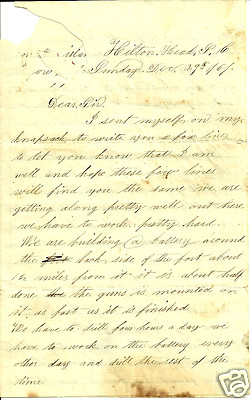 Hilton Head, S. C.
Sunday Dec. 29th /61
Dear Bro.
I seat myself on my
knapsack to write you a fow lines
to let you know that I am
well and hope these fow lines
will find you the same we are
getting along pretty well out here
we have to work pretty hard.
We are building a battery around
the back side of the fort about
1½ miles from it it is about half
done the guns is mounted on
it as fast us it is finished
We have to drill four hours a day we
have to work on the battery every
other day and drill the rest of the
time